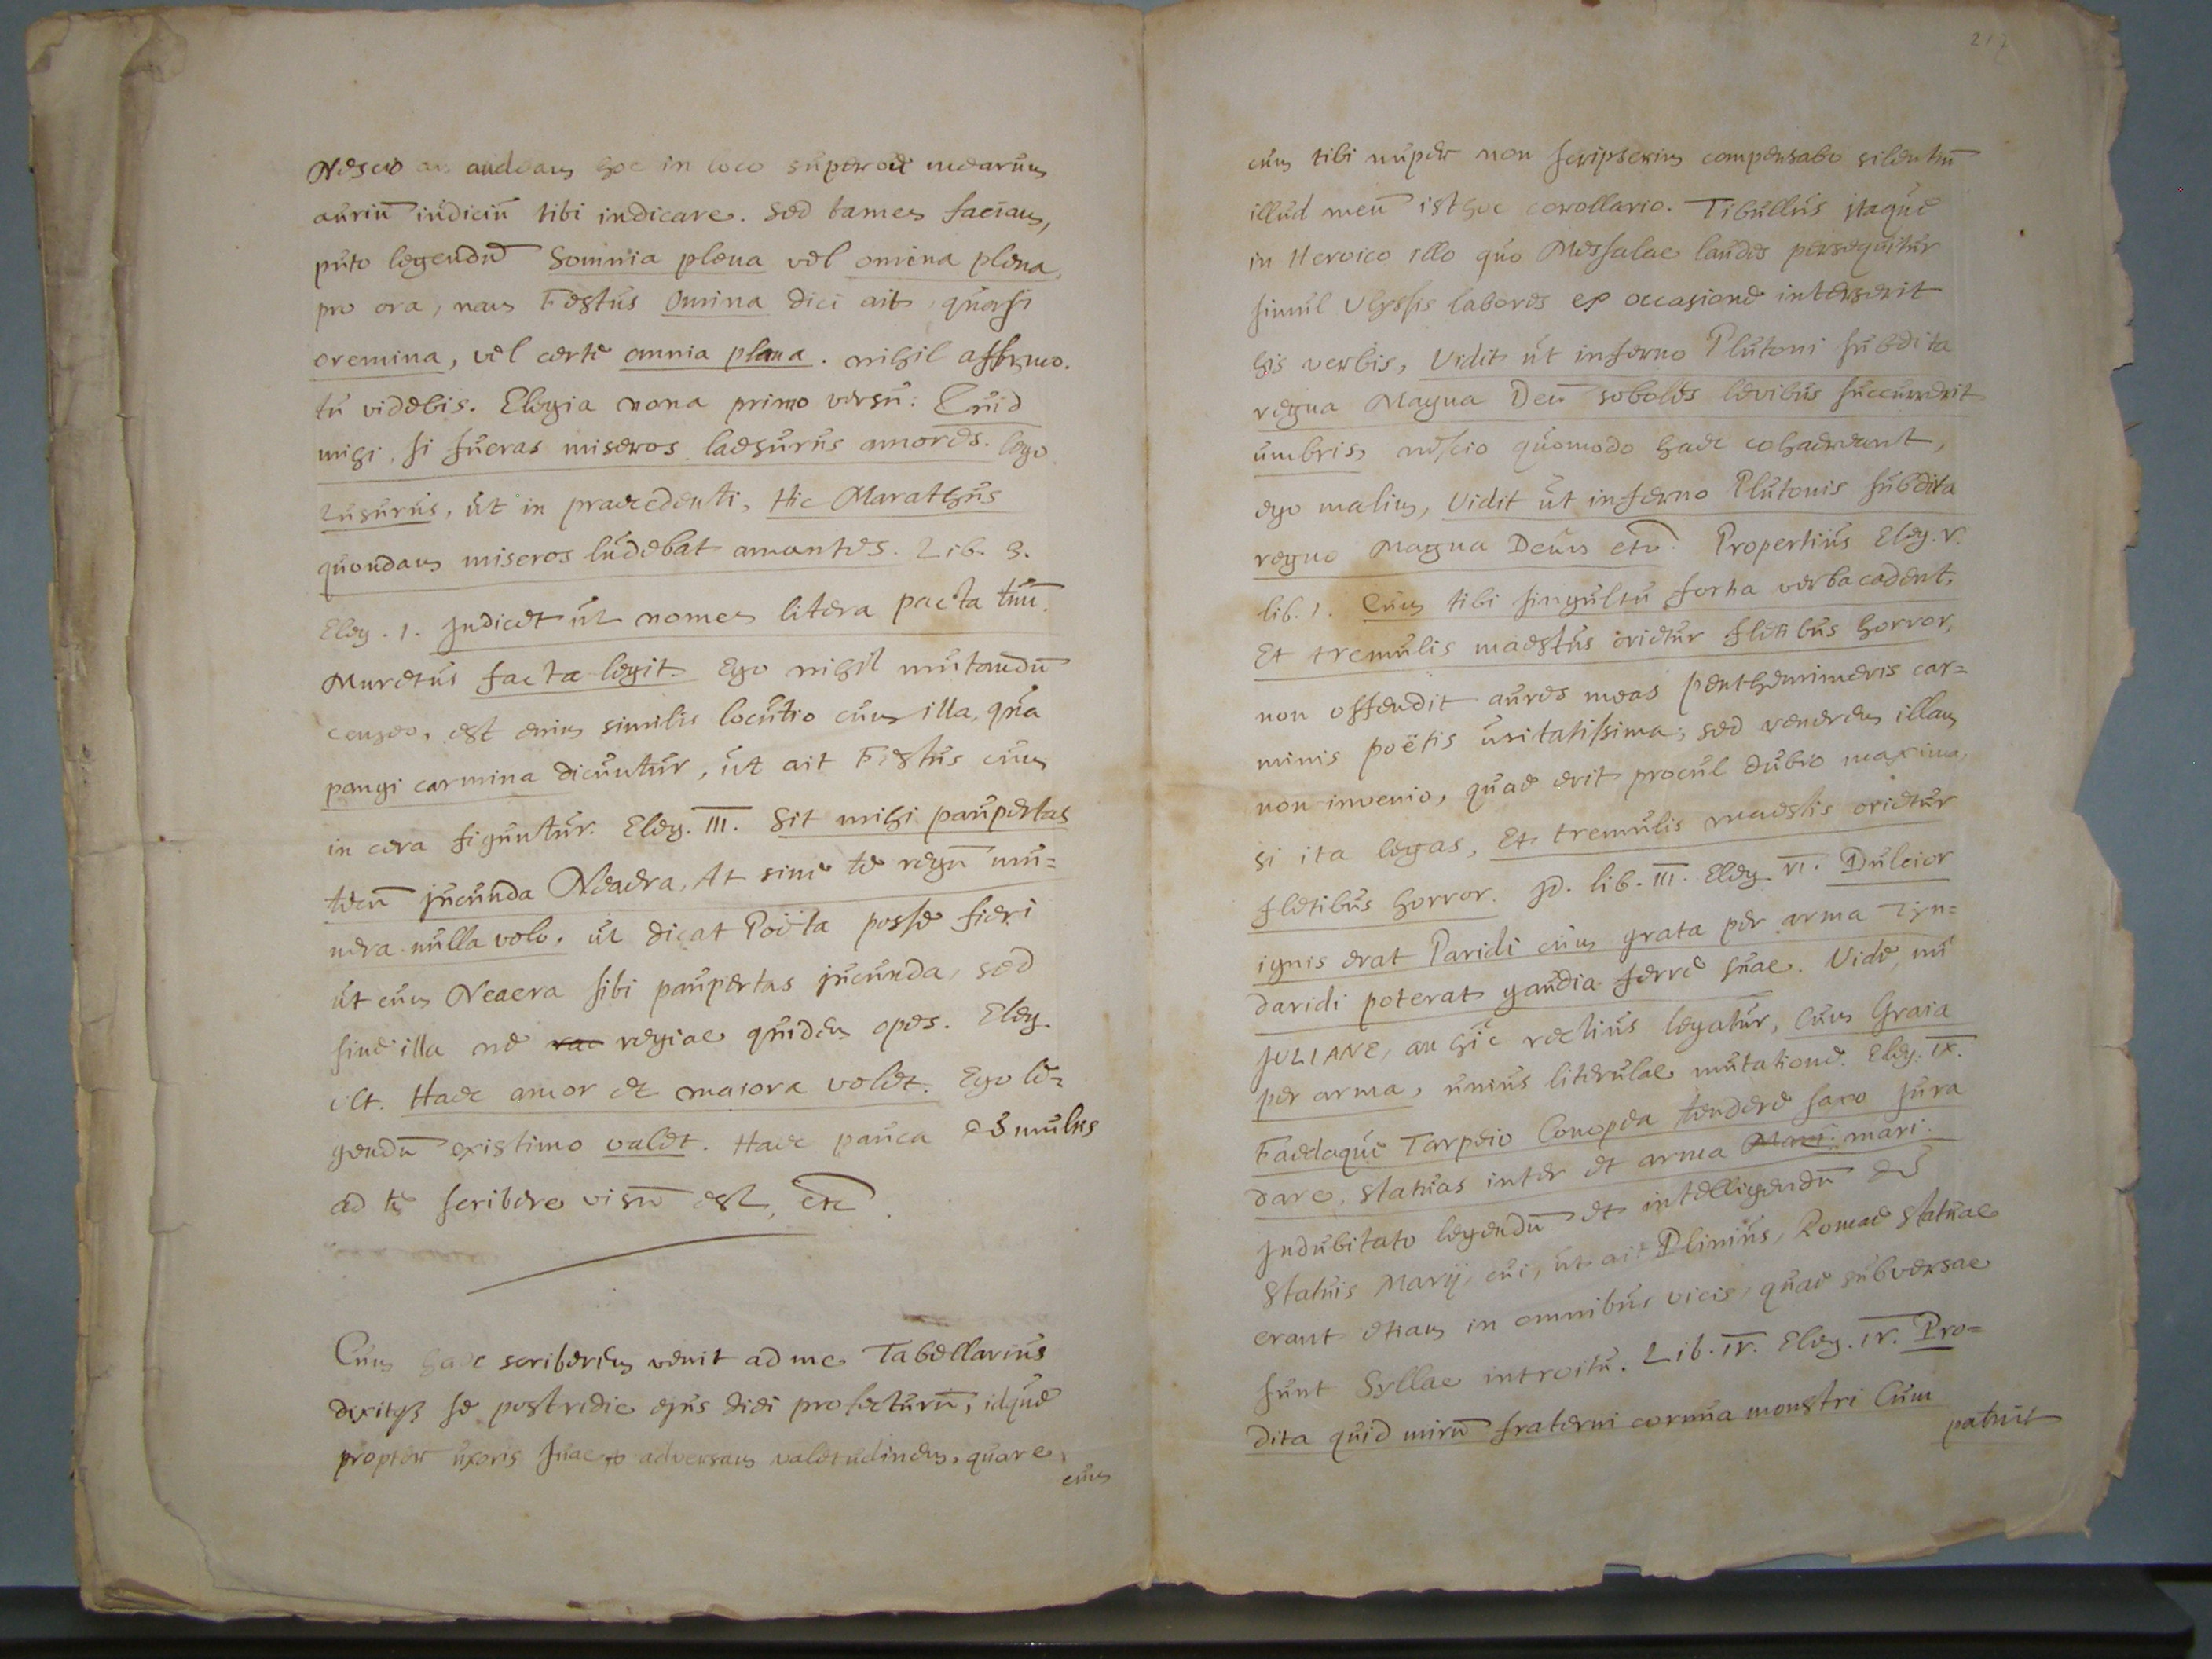 Nescio an audeam hoc in loco superbu mearum
auriū iúdiciū tibi indicare. sed tamen faciam,
puto legendū Somnia plena vel omina plena
pro ora, nam Festus Omina dici ait quasi
oremina, vel certe omnia plana. nihil affirmo.
tú videbis. Elegia nona primo versú: Quid
mihi, si fúeras miseros laesurús amores. lego
Lusurus, út in praecedenti, Hic Marathús
quondam miseros lúdebat amantes. Lib. 3.
Eleg. 1. Indicet út nomen litera pacta túū.
Muretús facta legit. Ego nihil mútandū
censeo, est enim similis locútio cúm illa, qúa
pangi carmina dicúntúr, út ait Festús cúm
in cera figúntúr. Eleg. III. Sit mihi paúpertas
tecū júcúnda Neaera, At sine te regū mú=
nera núlla volo. út dicat Poëta posse fieri
út cúm Neaera sibi paúpertas júcúnda, sed
sine illa ne rae regiae qúidem opes. Eleg.
ult. Haec amor et maiora volet. Ego le=
gendū existimo valet. Haec paúca è múltis
ad te scribere visū est, etc.
Cúm haec scriberem venit ad me Tabellariús
dixitqз se postridie ejús diei profectúrū, idqúe
propter úxoris súae adversam valetúdinem, qúare
cúm
217
cúm tibi núper non scripserim compensabo silentiū
illúd meū isthoc corollario. Tibúllús itaqúe
in Heroico illo qúo Messalae laúdes perseqúitúr
simúl Ulyssis labores ex occasione interserit
his verbis, Vidit út inferno Plútoni súbdita
regna Magna Deū soboles levibús súccúrrerit
úmbris, nescio qúomodo haec cohaereant,
ego malim, Vidit út inferno Plútonis súbdita
regno Magna Deúm etc. Propertiús Eleg. V.
lib. 1. Cúm tibi singúltú fortia verba cadent,
Et tremúlis maestús orietúr fletibús horror,
non offendit aúres meas penthemimeris car=
minis poëtis úsitatissima, sed venerem illam
non invenio, qúae erit procúl dúbio maxima,
si ita legas, Et tremúlis maestis orietúr
fletibús horror. Id. lib. III. Eleg. VI. Dúlcior
ignis erat Paridi cúm grata per arma Tyn=
daridi poterat gaúdia ferre súae. Vide, mi
JULIANE, an hic rectiús legatúr, Cúm Graia
per arma, úniús literúlae mútatione. Eleg. IX.
Faedaqúe Tarpeio Conopea tendere saxo Júra
dare, statúas inter et arma Mari mari.
Indúbitato legendū et intelligendū de
statúis Marij, cui, út ait Pliniús, Romae statúae
erant etiam in omnibús vicis, qúae súbversae
súnt Syllae introitú. Lib. IV. Eleg. IV. Pro=
dita quid mirū fraterni cornúa monstri Cum
patuit